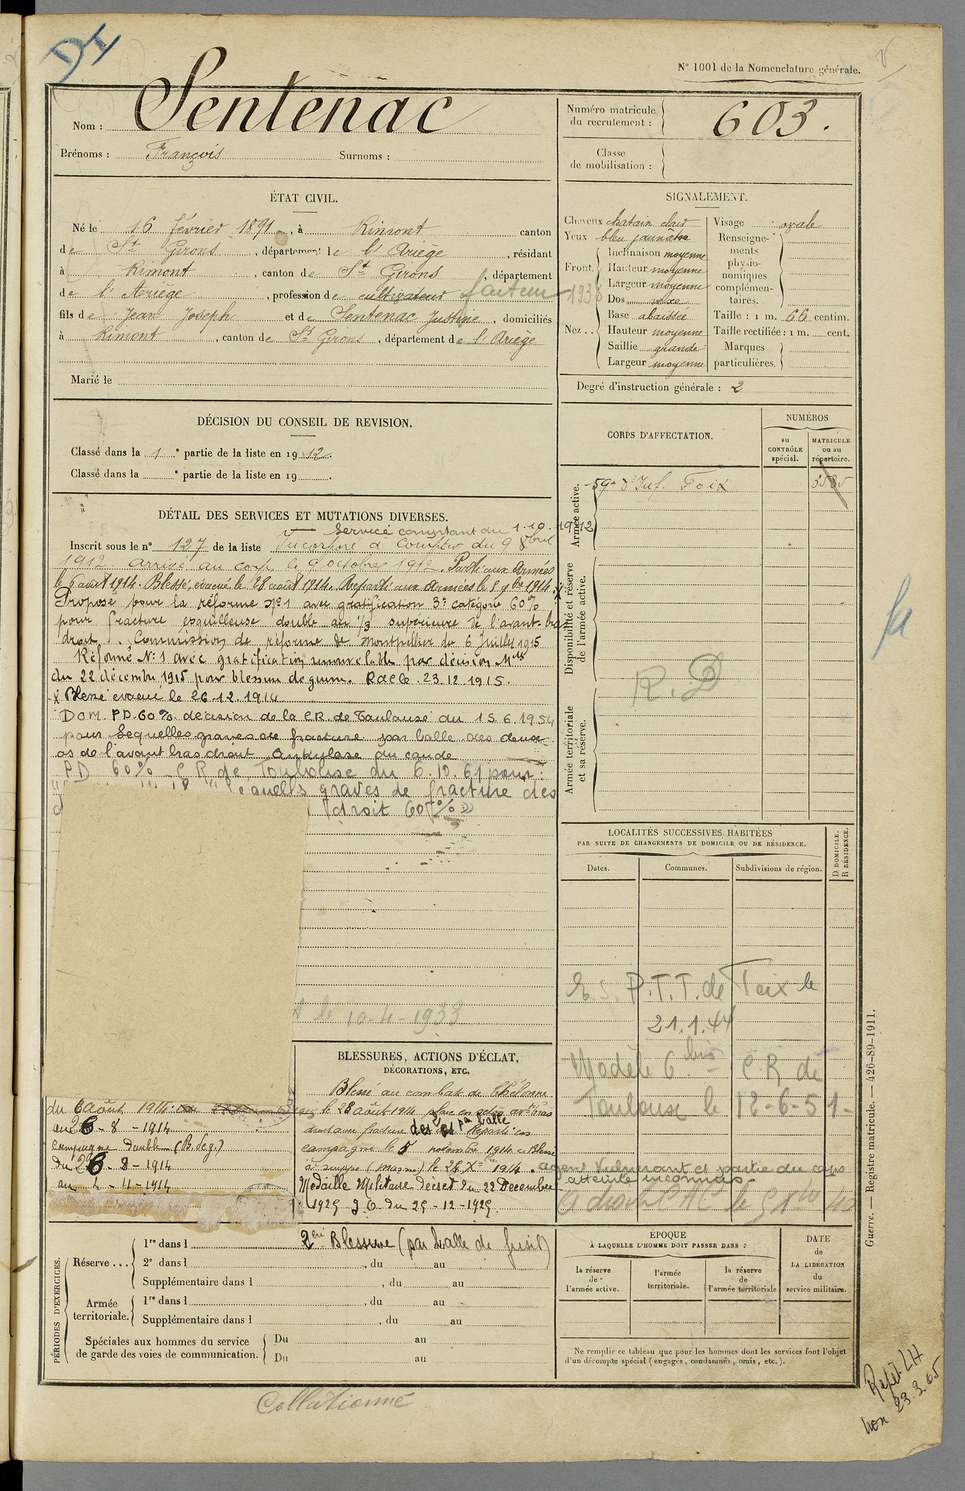 DI
N° 1001 de la Nomenclature générale.
Nom : Sentenac
Prénoms : François Surnoms :
Numéro matricule du recrutement : 603.
Classe de mobilisation :
ÉTAT CIVIL.
Né le 16 février 1891, à Rimont canton
de St Girons, département de l'Ariège, résidant
à Rimont, canton de St Girons, département
de l'Ariège, profession de cultivateur facteur 1938
fils de Jean Joseph et de Sentenac Justine, domiciliés
à Rimont, canton de St Girons, département de l'Ariège
Marié le
SIGNALEMENT.
Cheveux chatain clair
Yeux bleu jaunâtre
Front
Inclinaison moyenne
Hauteur moyenne
Largeur moyenne
Nez
Dos
Base abaissée
Hauteur moyenne
Saillie grande
Largeur moyenne
Visage ovale
Renseignements physionomiques complémentaires.
Taille : 1 m. 66 centim.
Taille rectifiée : 1 m. cent.
Marques particulières.
Degré d'instruction générale : 2
DÉCISION DU CONSEIL DE REVISION.
Classé dans la 1e partie de la liste en 1912.
Classé dans la e partie de la liste en 19 .
CORPS D'AFFECTATION.
NUMÉROS
au CONTRÔLE spécial.
MATRICULE ou au répertoire.
Armée active.
59e d'Inf. Foix
Disponibilité et réserve de l'armée active.
R.D
Armée territoriale et sa réserve.
DÉTAIL DES SERVICES ET MUTATIONS DIVERSES.
Service comptant du 1.10.1912
Inscrit sous le n° 127 de la liste Incorporé à compter du 9 8bre
1912 arrivé au corps le 9 octobre 1912. Parti aux Armées
le 6 août 1914. Blessé, évacué le 28 août 1914. Reparti aux Armées le 5 9bre 1914.
Proposé pour la réforme n°1 avec gratification 3e catégorie 60%
pour fracture esquilleuse double au 1/3 supérieure de l'avant-bras
droit. Commission de réforme de Montpellier du 6 juillet 1915
Réformé N°1 avec gratification renouvelable par décision Mlle
du 22 décembre 1915 pour blessure de guerre. R.d.C le 23.12.1915.
x Blessé évacué le 26.12.1914
Dom. P.D. 60% décision de la C.R. de Toulouse du 15.6.1954
pour séquelles graves de fracture par balle des deux
os de l'avant bras droit. Ankylose du coude
PD 60% C R de Toulouse du 6.12.61 pour :
séquelles graves de fracture des
droit 60%
le 10-4-1933
LOCALITÉS SUCCESSIVES HABITÉES
PAR SUITE DE CHANGEMENTS DE DOMICILE OU DE RÉSIDENCE.
Dates. Communes. Subdivisions de région.
D DOMICILE. R RÉSIDENCE.
P.T.T. de Foix le
21.1.44
Modèle 6 bis C R de
Toulouse le 12-6-51-
du 6 août 1914
au 26-8-1914
campagne double (B. Leg.)
du 26-8-1914
au 4-11-1914
BLESSURES, ACTIONS D'ÉCLAT,
DÉCORATIONS, ETC.
Blessé au combat de Thélonne
le 28 août 1914 plaie en avt bras
droit avec fracture des os par balle Reparti en
campagne le 5 novembre 1914
Suippe (Marne) le 26 Xbre 1914. agent vulnérant et partie du corps
atteinte inconnus.
Médaille Militaire décret du 22 Décembre
1929 J.O. du 29-12-1929.
2me Blessure (par balle de fusil)
PÉRIODES D'EXERCICES.
Réserve
1re dans l
2e dans l , du au
Supplémentaire dans l , du au
Armée territoriale.
1re dans l , du au
Supplémentaire dans l , du au
Spéciales aux hommes du service de garde des voies de communication.
Du au
Du au
ÉPOQUE
À LAQUELLE L'HOMME DOIT PASSER DANS :
la réserve de l'armée active.
l'armée territoriale.
la réserve de l'armée territoriale
DATE de LA LIBÉRATION du service militaire.
Ne remplir ce tableau que pour les hommes dont les services font l'objet
d'un décompte spécial (engagés, condamnés, omis, etc.).
Guerre. — Registre matricule. — 426-89-1911.
Collationné
23.3.65